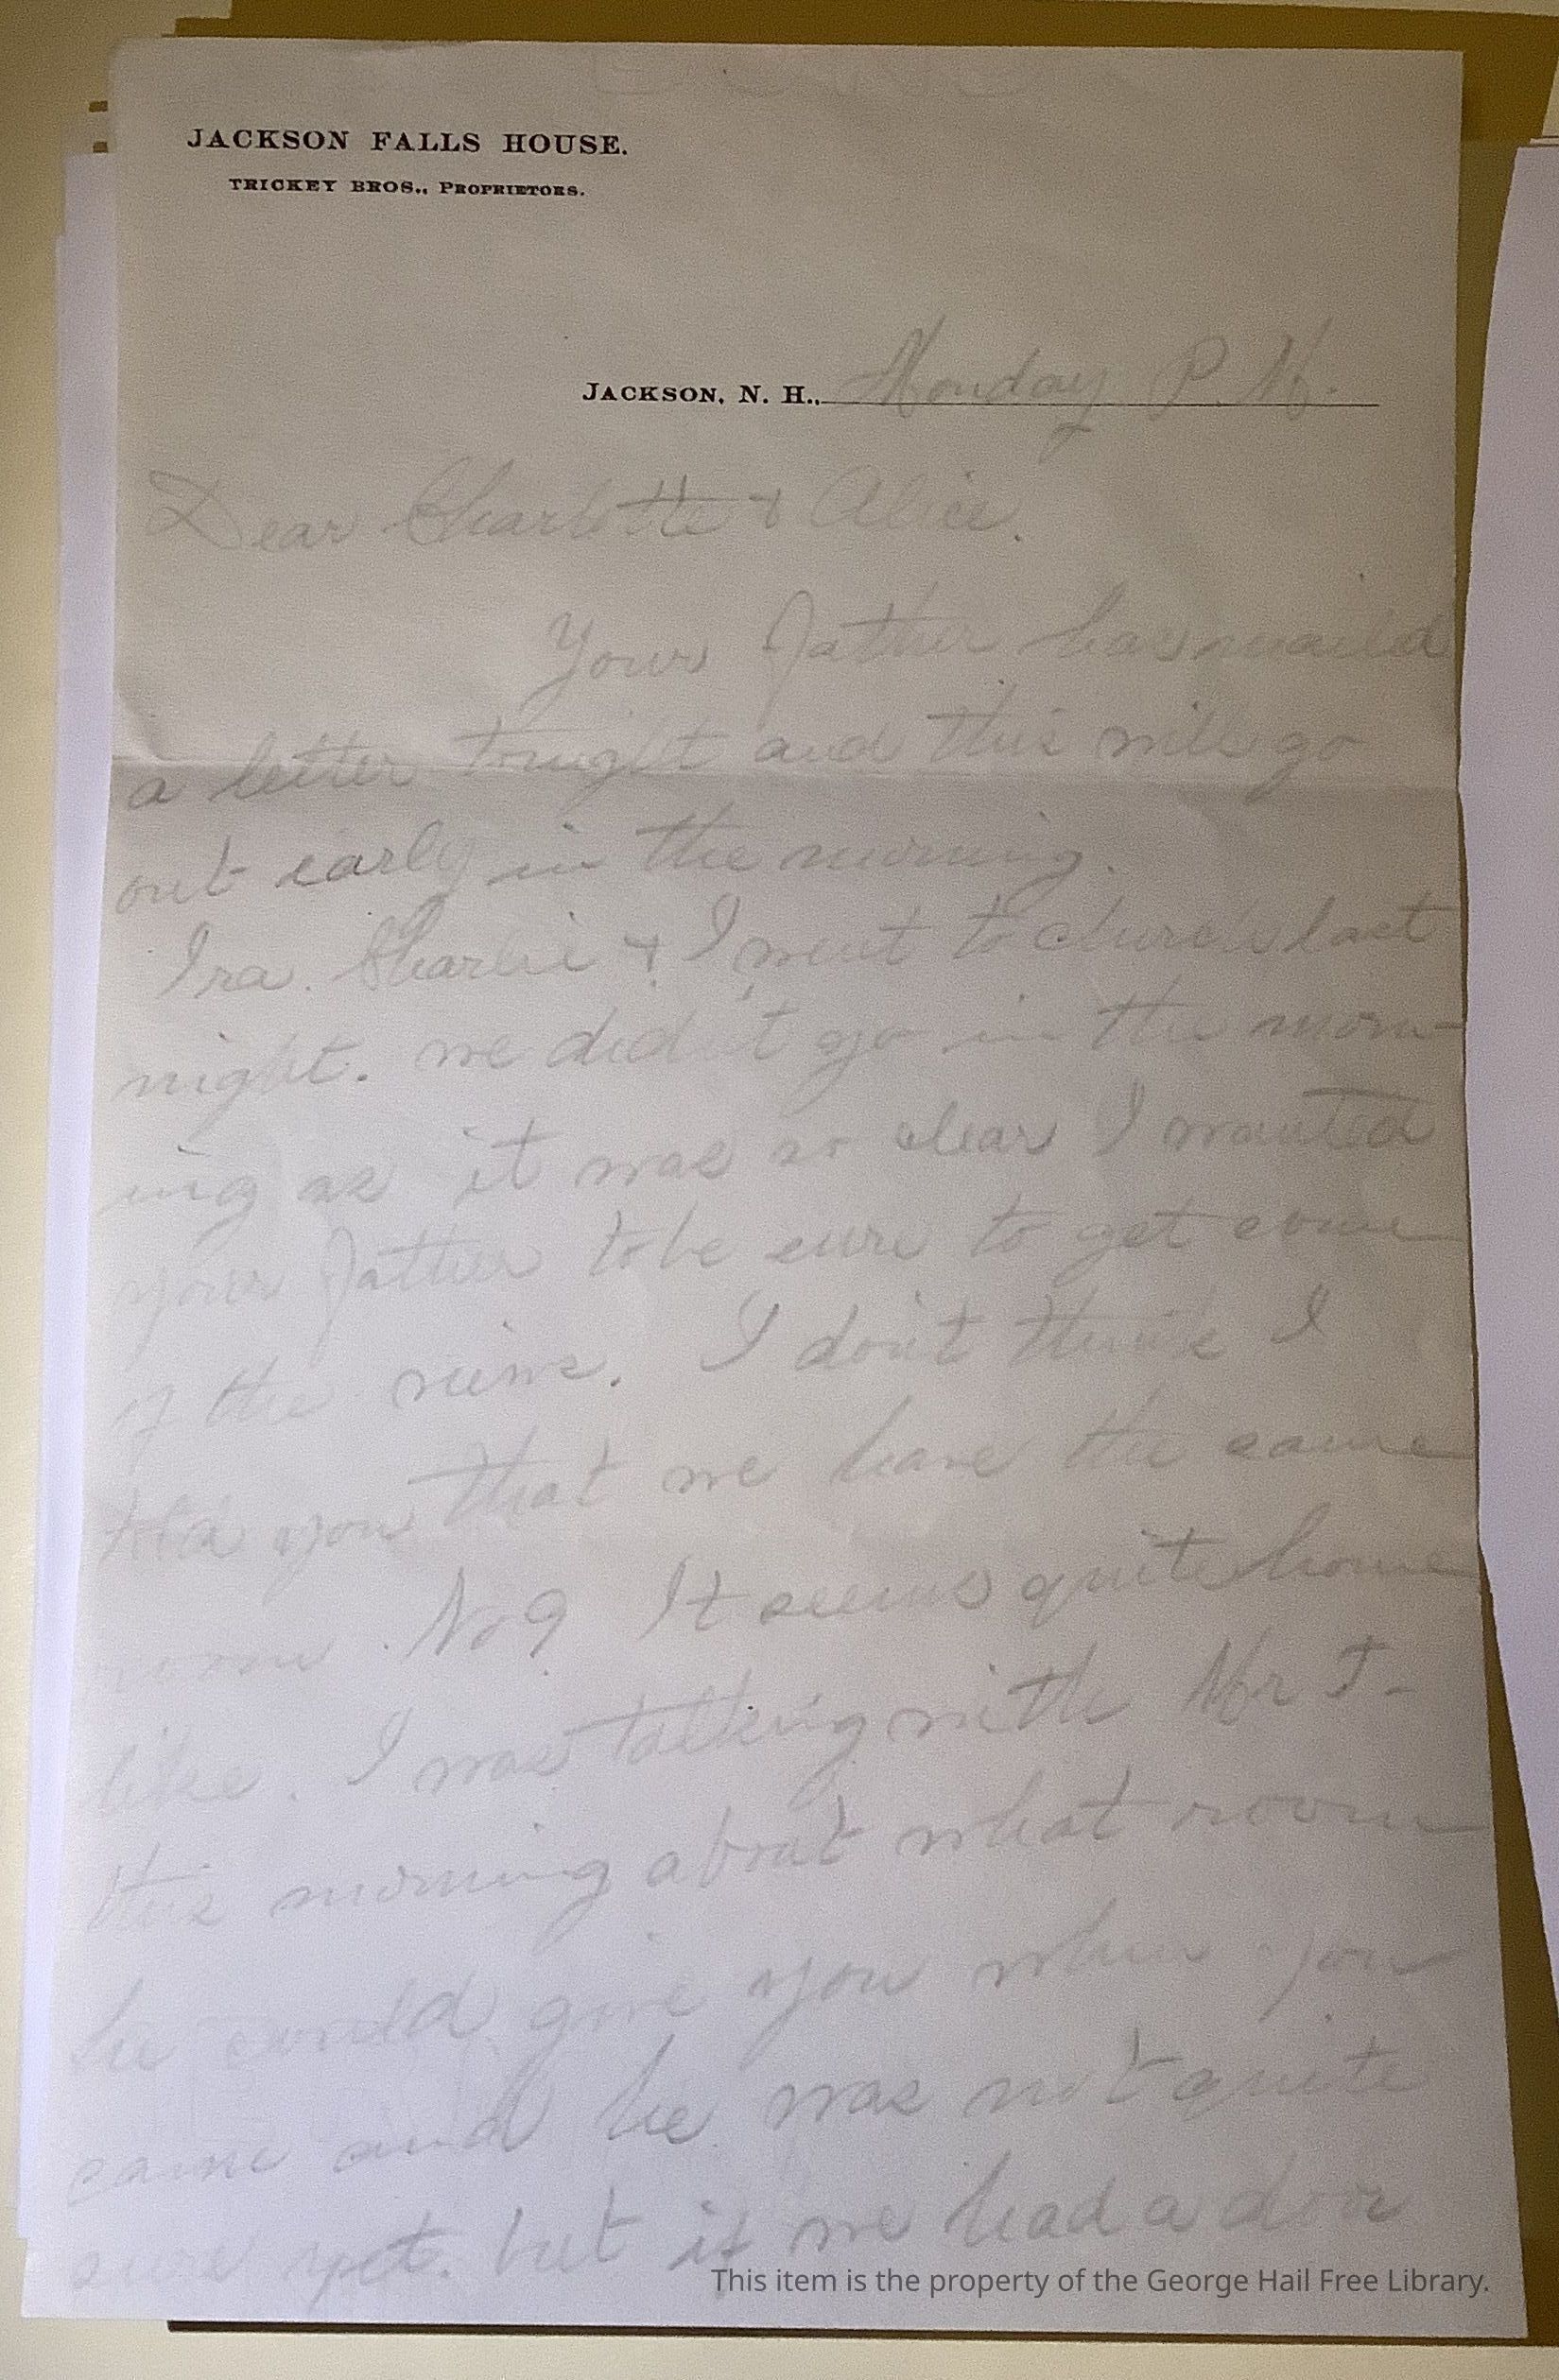 JACKSON FALLS HOUSE.
TRICKEY BROS., PROPRIETORS.
JACKSON, N. H., Monday P. M.
Dear Charlotte & Alice.
Your Father has mailed
a letter tonight and this will go
out early in the morning.
Ira. Charlie & I went to church last
night. we did'nt go in the morn-
ing as it was so clear I wanted
your Father to be sure to get some
of the views. I don't think I
told you that we have the same
room No 9 It seems quite home
like. I was talking with Mr T-
this morning about what room
he could give you when you
came and he was not quite
sure yet. but if we had a door
This item is the property of the George Hail Free Library.